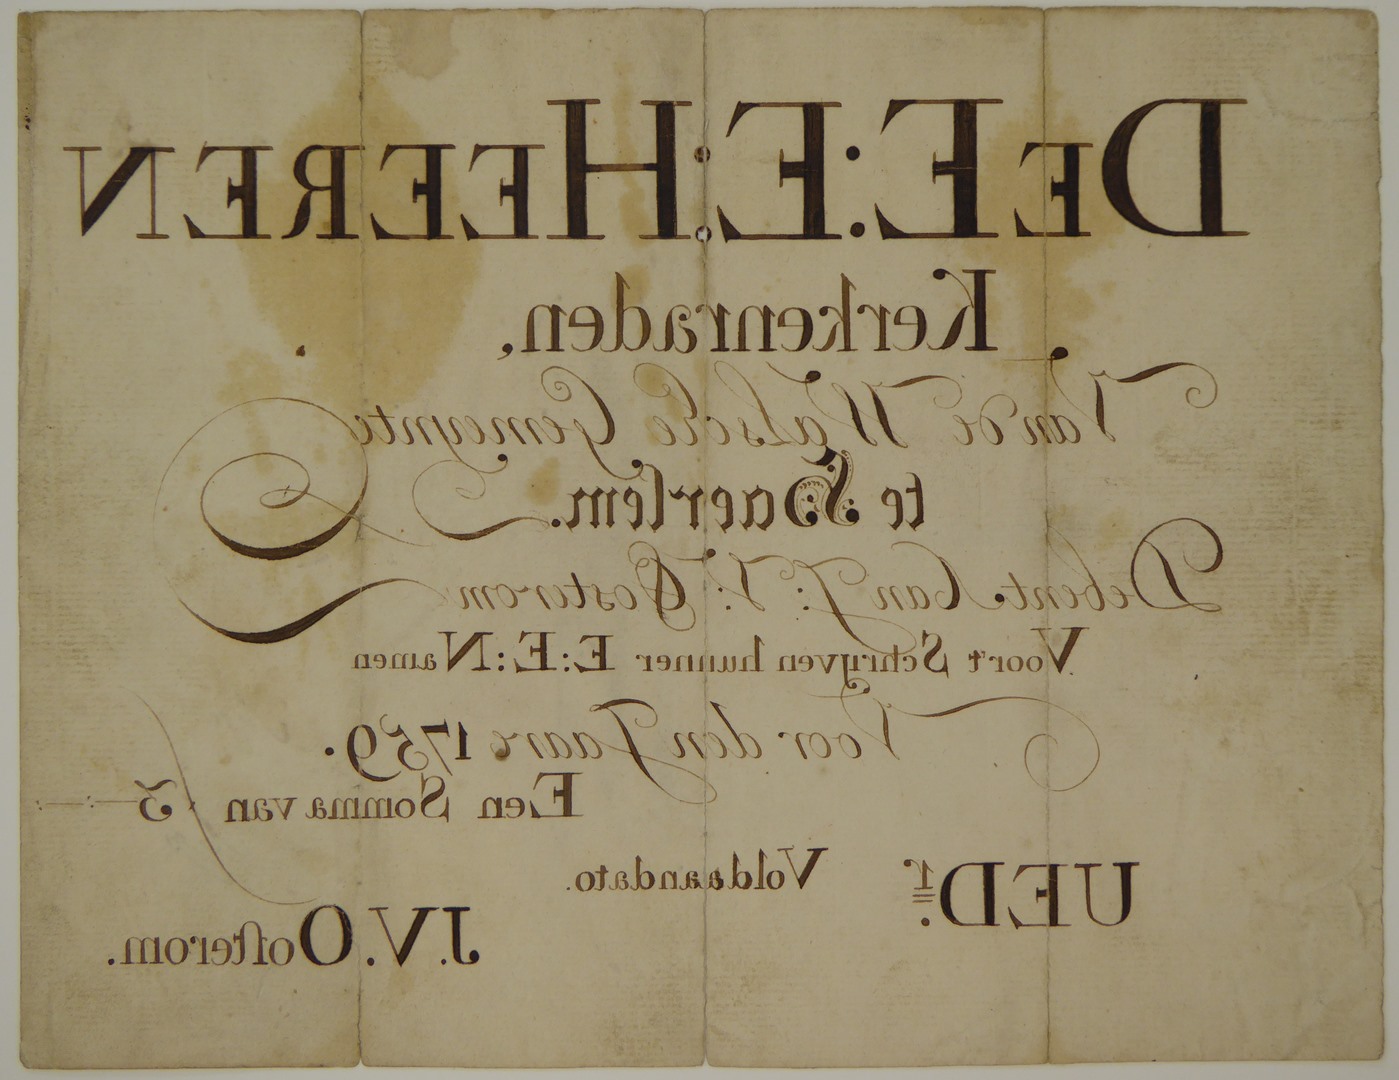 DE E: E: HEEREN
Kerkenraden,
Van de Walsche Gemeynte
te Haerlem.
Debent. Aan J: V: Oosterom
Voor't Schryven hunner E: E: Namen
Voor den Jaare 1759.
Een Somma van 3 -:-:-
Voldaandato.
UEDr.
J.V. Oosterom.